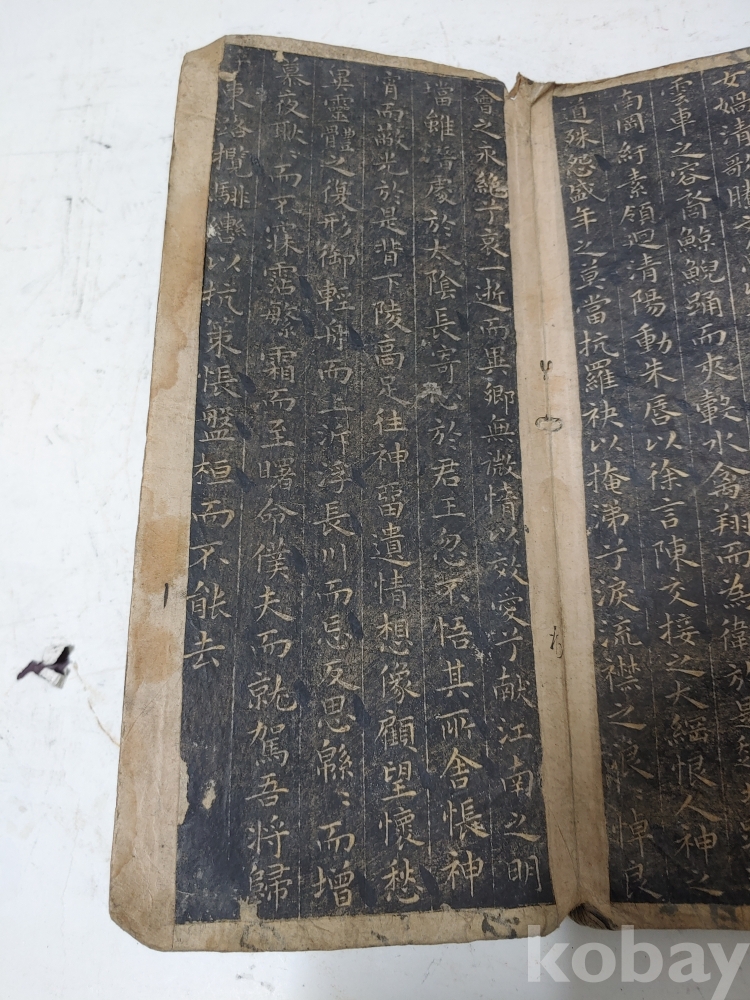 女媧清歌
雲車之容裔鯨鯢踊而夾轂水禽翔而為衛於是
南岡紆素領迴清陽動朱唇以徐言陳交接之大綱恨人神之
道殊怨盛年之莫當抗羅袂以掩涕兮淚流襟之浪〻悼良
會之永絕兮哀一逝而異鄉無微情以效愛兮献江南之明
璫雖潛處於太陰長寄心於君王忽不悟其所舍悵神
宵而蔽光於是背下陵高足往神留遺情想像顧望懷愁
冀靈體之復形御輕舟而上泝浮長川而忘反思緜〻而增
慕夜耿〻而不寐霑繁霜而至曙命僕夫而就駕吾將歸
乎東路攬騑轡以抗策悵盤桓而不能去
kobay